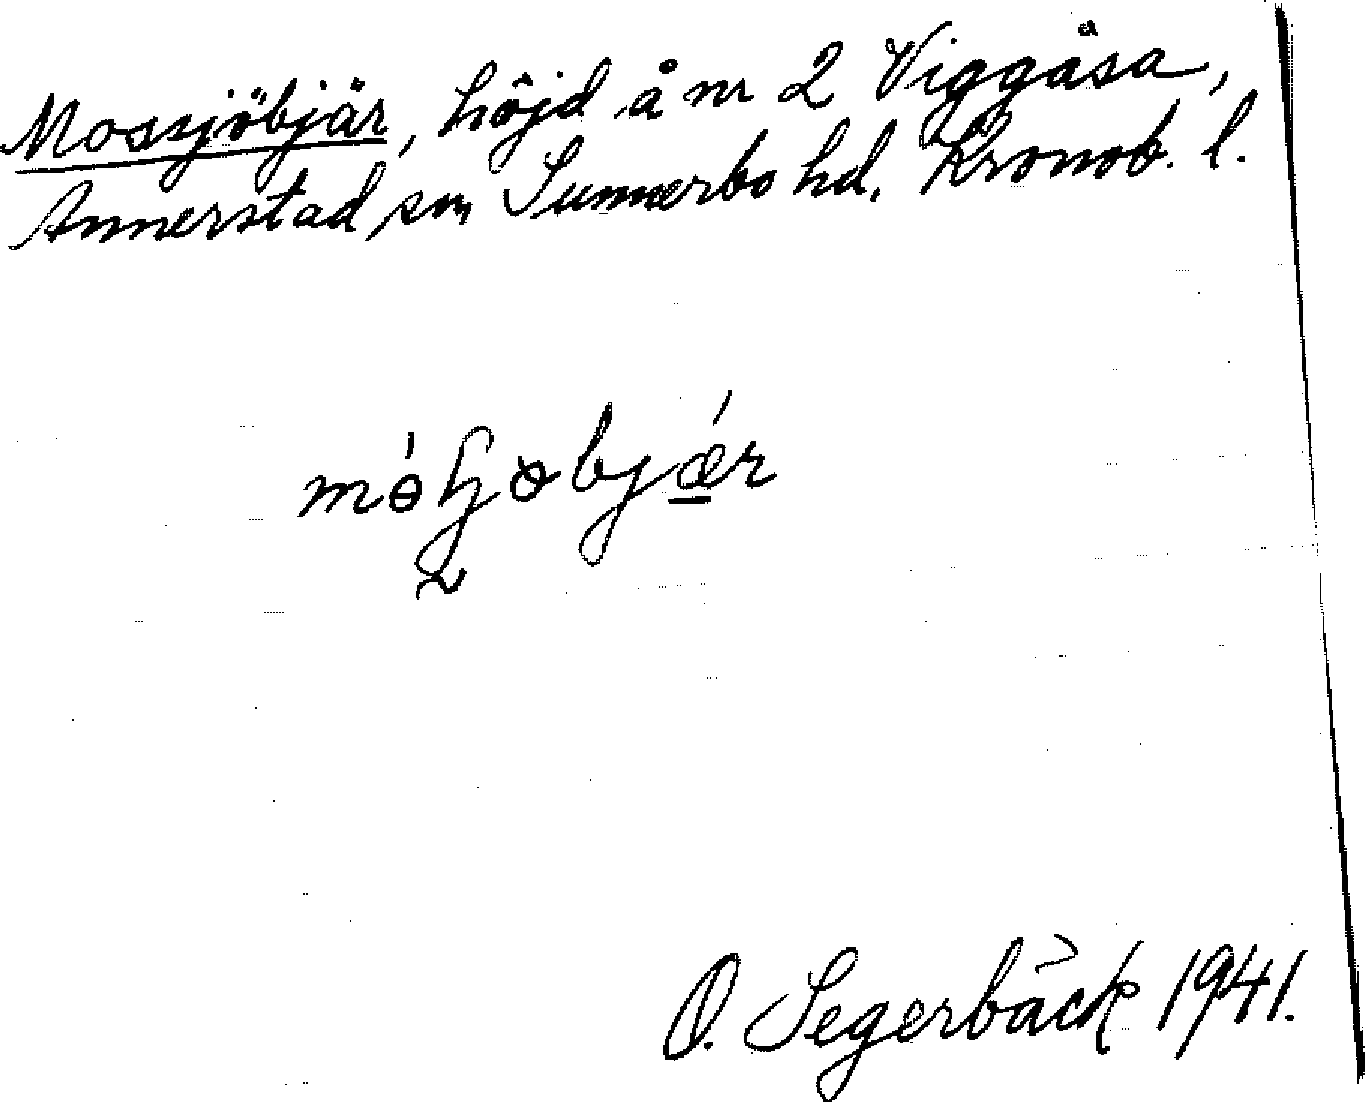 Mossjöbjär, höjd å nr 2 Viggåsa,
Annerstad sn, Sunnerbo hd, Kronob. l.
O. Segerbäck 1941.